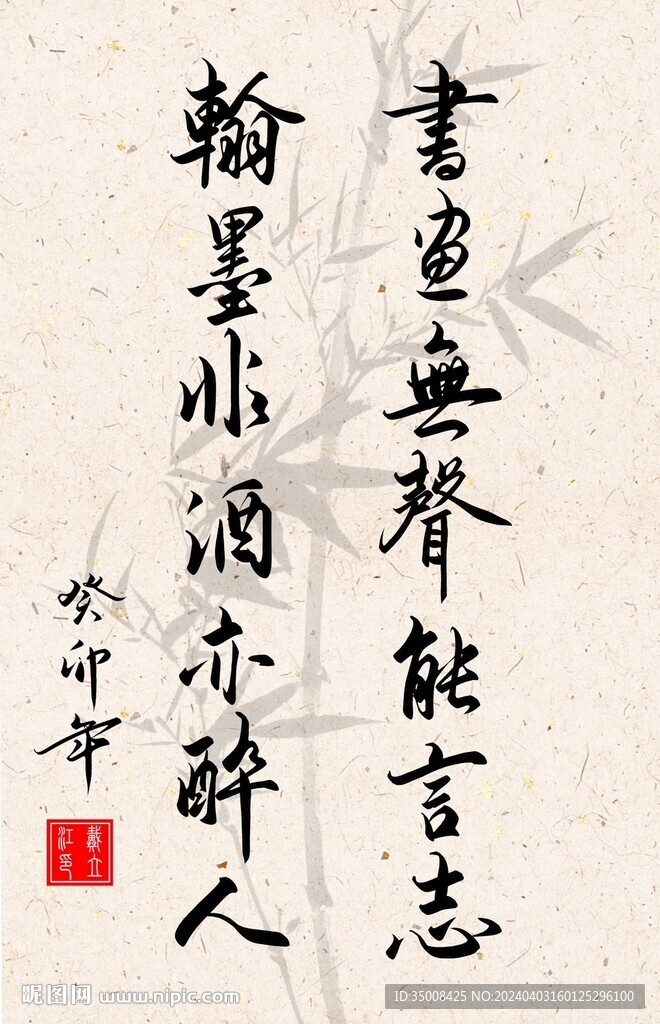 書畫無聲能言志
翰墨非酒亦醉人
癸卯年
戴立江印
昵图网 www.nipic.com
ID:35008425 NO:20240403160125296100